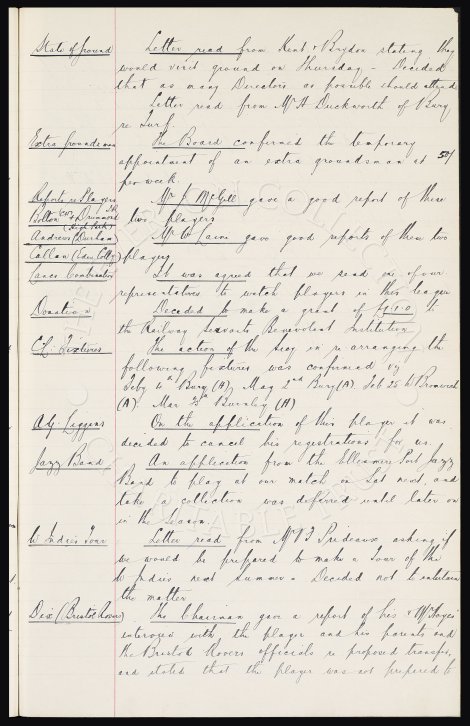 State of ground Letter read from Kent & Brydon stating they
would visit ground on Thursday - Decided
that as many Directors as possible should attend
Letter read from Mr A Duckworth of Bury
re Turf.
Extra groundsman The Board confirmed the temporary
appointment of an extra groundsman at 50/-
per week.
Reports re Players Mr J McGill gave a good report of these
Bolton & Drummond two players
Andrews (Durham) Mr W Cairns gave good reports of these two
Callan players
Lancs Combination It was agreed that we send one of our
representatives to watch players in this league
Donation Decided to make a grant of to
the Railway Servants Benevolent Institution
C.L. Fixtures The action of the Secy in re arranging the
following fixtures was confirmed viz
Feby 4th Bury (H), May 2nd Bury (A). Feb 25 W Bromwich
(A). Mar Burnley (H)
Alf. Liggins On the application of this player it was
decided to cancel his registrations for us
Jazz Band An application from the Ellesmere Port Jazz
Band to play at our match on Sat next, and
take a collection was deferred until later on
in the Season.
W Indies Tour Letter read from Mr Prideaux asking if
we would be prepared to make a Tour of the
W Indies next Summer - Decided not to entertain
the matter
Dix (Bristol Rovers) The Chairman gave a report of his & Mr
interview with the player and his parents and
the Bristol Rovers officials re proposed transfer,
and stated that the player was not prepared to